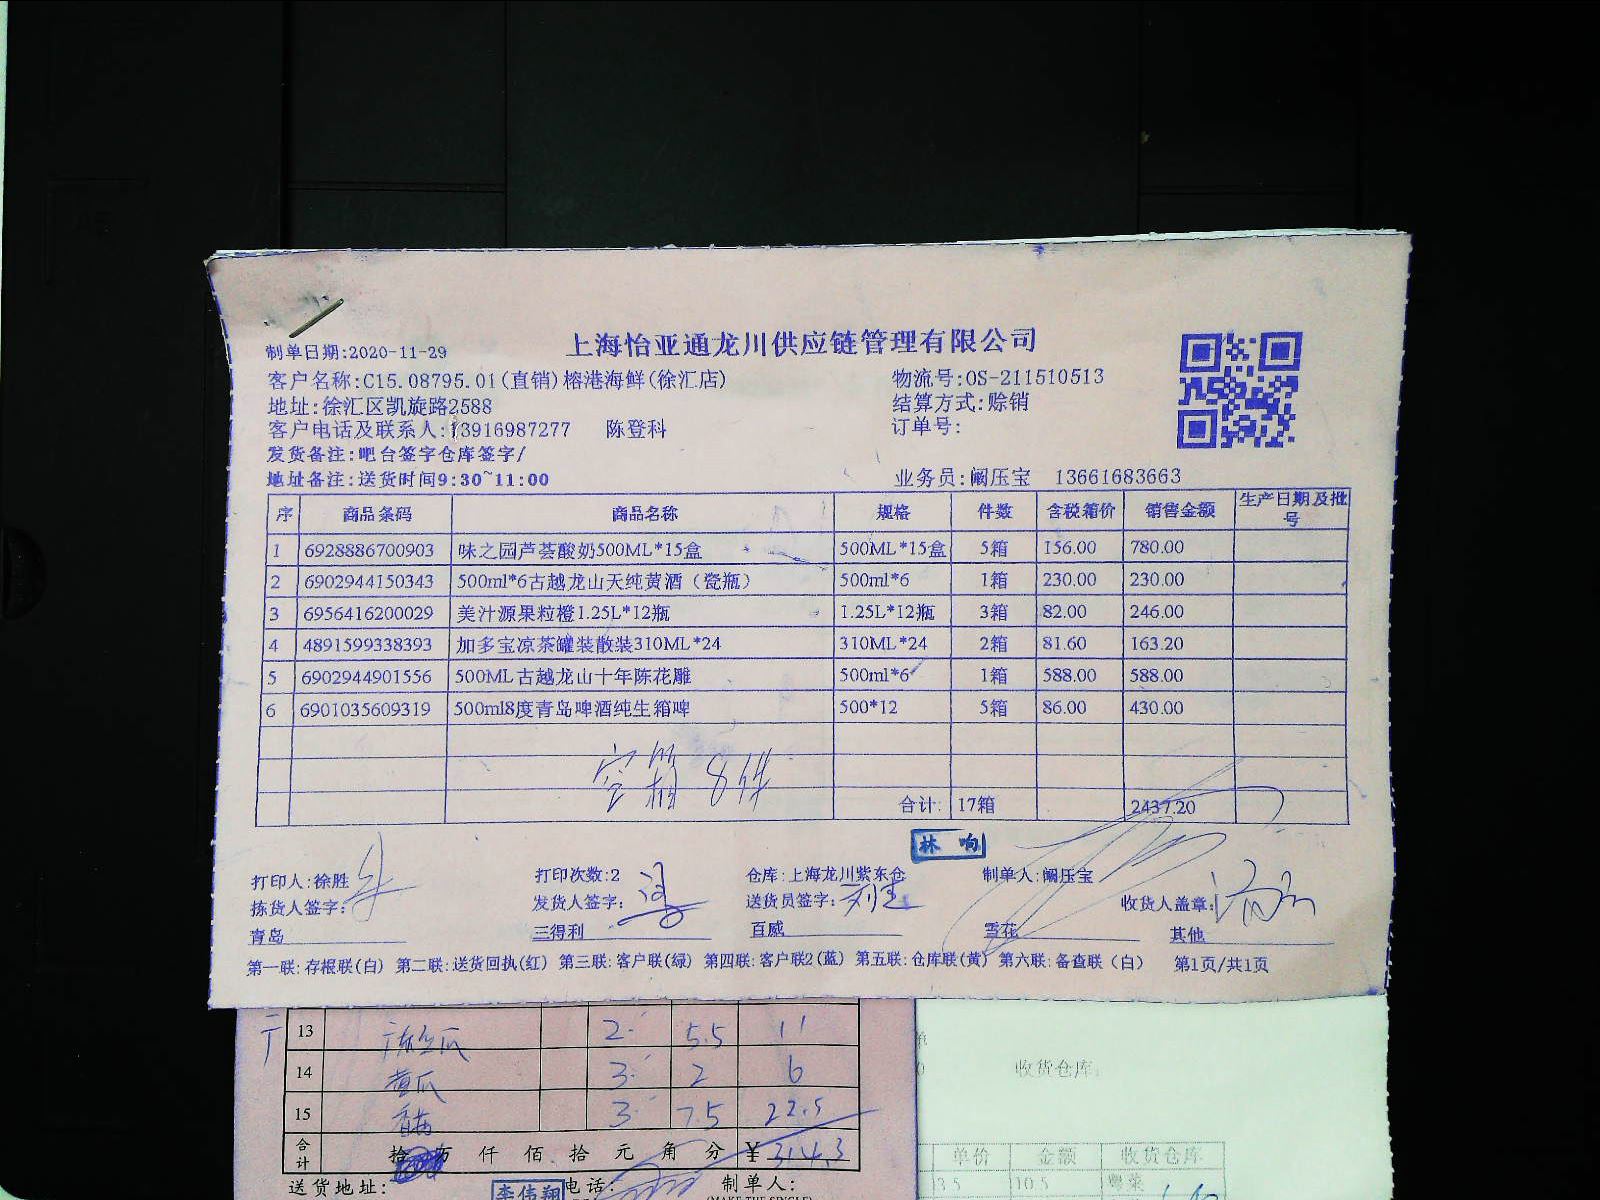 上海怡亚通龙川供应链管理有限公司
制单日期:2020-11-29
客户名称:C15.08795.01(直销)榕港海鲜(徐汇店) 物流号:OS-211510513
地址:徐汇区凯旋路2588 结算方式:赊销
客户电话及联系人:13916987277 陈登科 订单号:
发货备注:吧台签字仓库签字/
地址备注:送货时间9:30~11:00 业务员:阚压宝 13661683663
序 商品条码 商品名称 规格 件数 含税箱价 销售金额 生产日期及批号
1 6928886700903 味之园芦荟酸奶500ML*15盒 500ML*15盒 5箱 156.00 780.00
2 6902944150343 500ml*6古越龙山天纯黄酒（瓷瓶） 500ml*6 1箱 230.00 230.00
3 6956416200029 美汁源果粒橙1.25L*12瓶 1.25L*12瓶 3箱 82.00 246.00
4 4891599338393 加多宝凉茶罐装散装310ML*24 310ML*24 2箱 81.60 163.20
5 6902944901556 500ML古越龙山十年陈花雕 500ml*6 1箱 588.00 588.00
6 6901035609319 500ml8度青岛啤酒纯生箱啤 500*12 5箱 86.00 430.00
空箱 8件
合计: 17箱 2437.20
林 响
打印人:徐胜 打印次数:2 仓库:上海龙川紫东仓 制单人:阚压宝
拣货人签字: 发货人签字: 送货员签字: 收货人盖章:
青岛 三得利 百威 雪花 其他
第一联:存根联(白) 第二联:送货回执(红) 第三联:客户联(绿) 第四联:客户联2(蓝) 第五联:仓库联(黄) 第六联:备查联（白） 第1页/共1页
13 广东丝瓜 2 5.5 11
14 黄瓜 3 2 6
15 香菇 3 7.5 22.5
合计 拾 万 仟 佰 拾 元 角 分 ¥314.3
送货地址: 李伟翔 电话: 制单人:
收货仓库:
单价 金额 收货仓库
3.5 10.5 粤菜